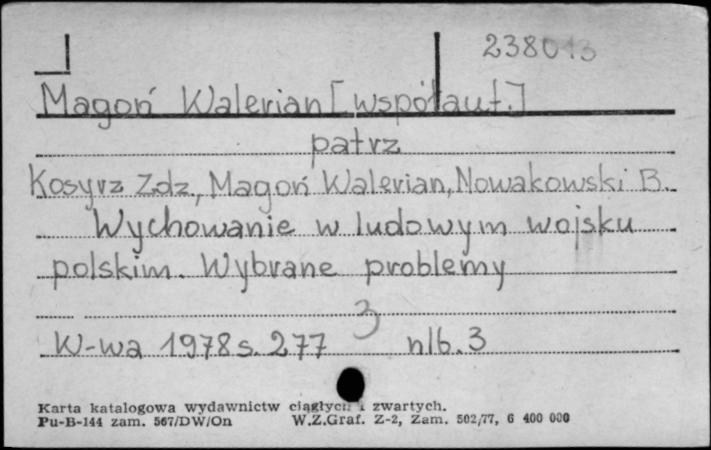 238013
Magoń Walerian [współaut.]
patrz
Kosyrz Zdz., Magoń Walerian, Nowakowski B.
Wychowanie w ludowym wojsku
polskim. Wybrane problemy
3
W-wa 1978 s. 277 nlb. 3
Karta katalogowa wydawnictw ciągłych i zwartych.
Pu-B-144 zam. 567/DW/On W.Z.Graf. Z-2, Zam. 502/77, 6 400 000